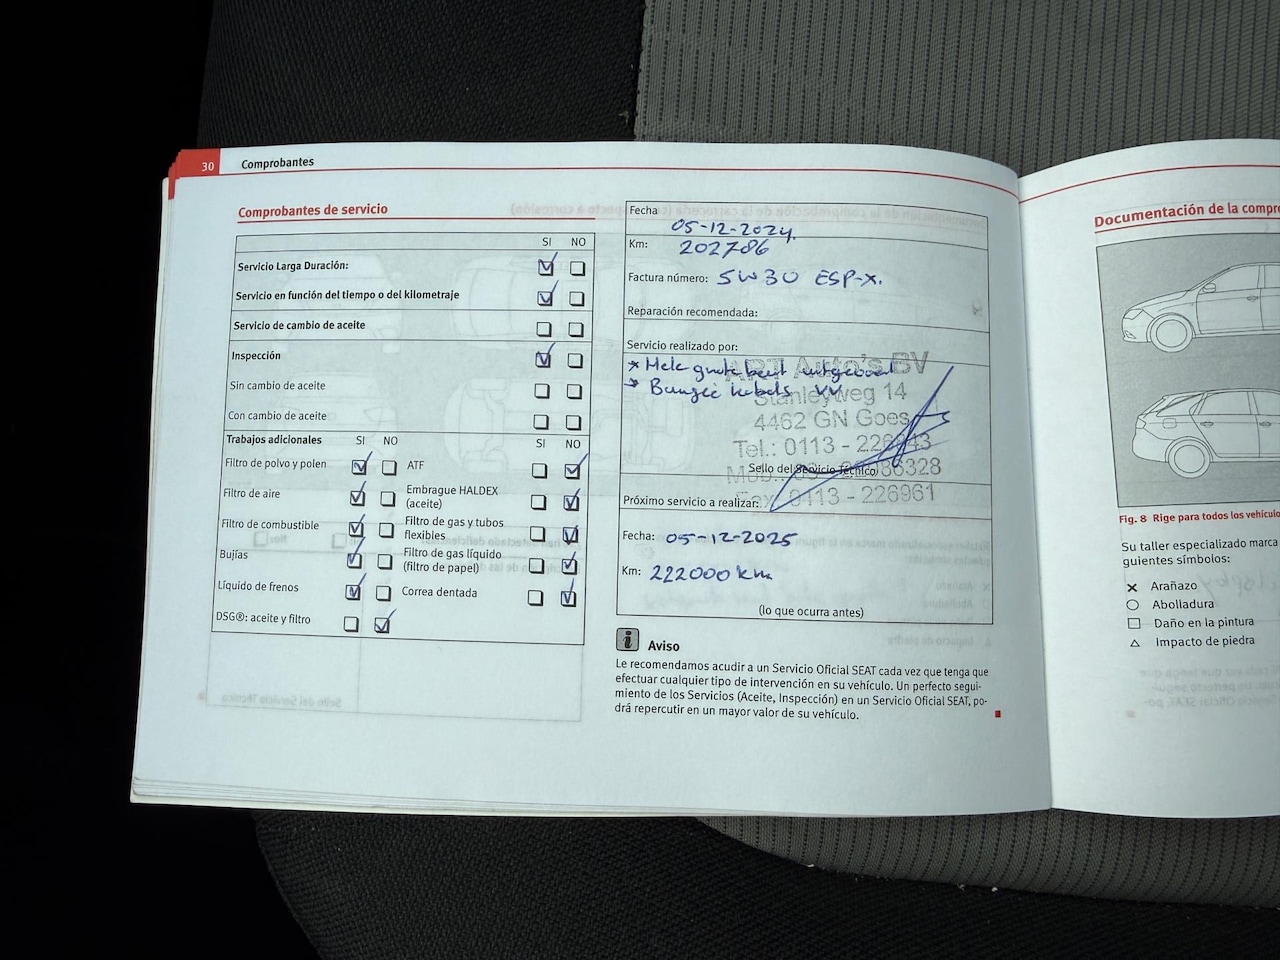 30 Comprobantes
Comprobantes de servicio
SI NO
Servicio Larga Duración:
Servicio en función del tiempo o del kilometraje
Servicio de cambio de aceite
Inspección
Sin cambio de aceite
Con cambio de aceite
Trabajos adicionales SI NO SI NO
Filtro de polvo y polen ATF
Filtro de aire Embrague HALDEX
(aceite)
Filtro de combustible Filtro de gas y tubos
flexibles
Bujías Filtro de gas líquido
(filtro de papel)
Líquido de frenos Correa dentada
DSG®: aceite y filtro
Fecha
05-12-2024.
Km: 202786
Factura número: 5W30 ESP-X.
Reparación recomendada:
Servicio realizado por:
* Hele grote beurt uitgevoerd
* Bougie kabels VV
ART Auto's BV
Stanleyweg 14
4462 GN Goes
Tel.: 0113 -
Sello del Servicio Técnico
Fax: 0113 - 226961
Próximo servicio a realizar:
Fecha: 05-12-2025
Km: 222000 km
(lo que ocurra antes)
i Aviso
Le recomendamos acudir a un Servicio Oficial SEAT cada vez que tenga que
efectuar cualquier tipo de intervención en su vehículo. Un perfecto segui-
miento de los Servicios (Aceite, Inspección) en un Servicio Oficial SEAT, po-
drá repercutir en un mayor valor de su vehículo.
Documentación de la compro
Fig. 8 Rige para todos los vehículo
Su taller especializado marca
guientes símbolos:
Arañazo
Abolladura
Daño en la pintura
Impacto de piedra